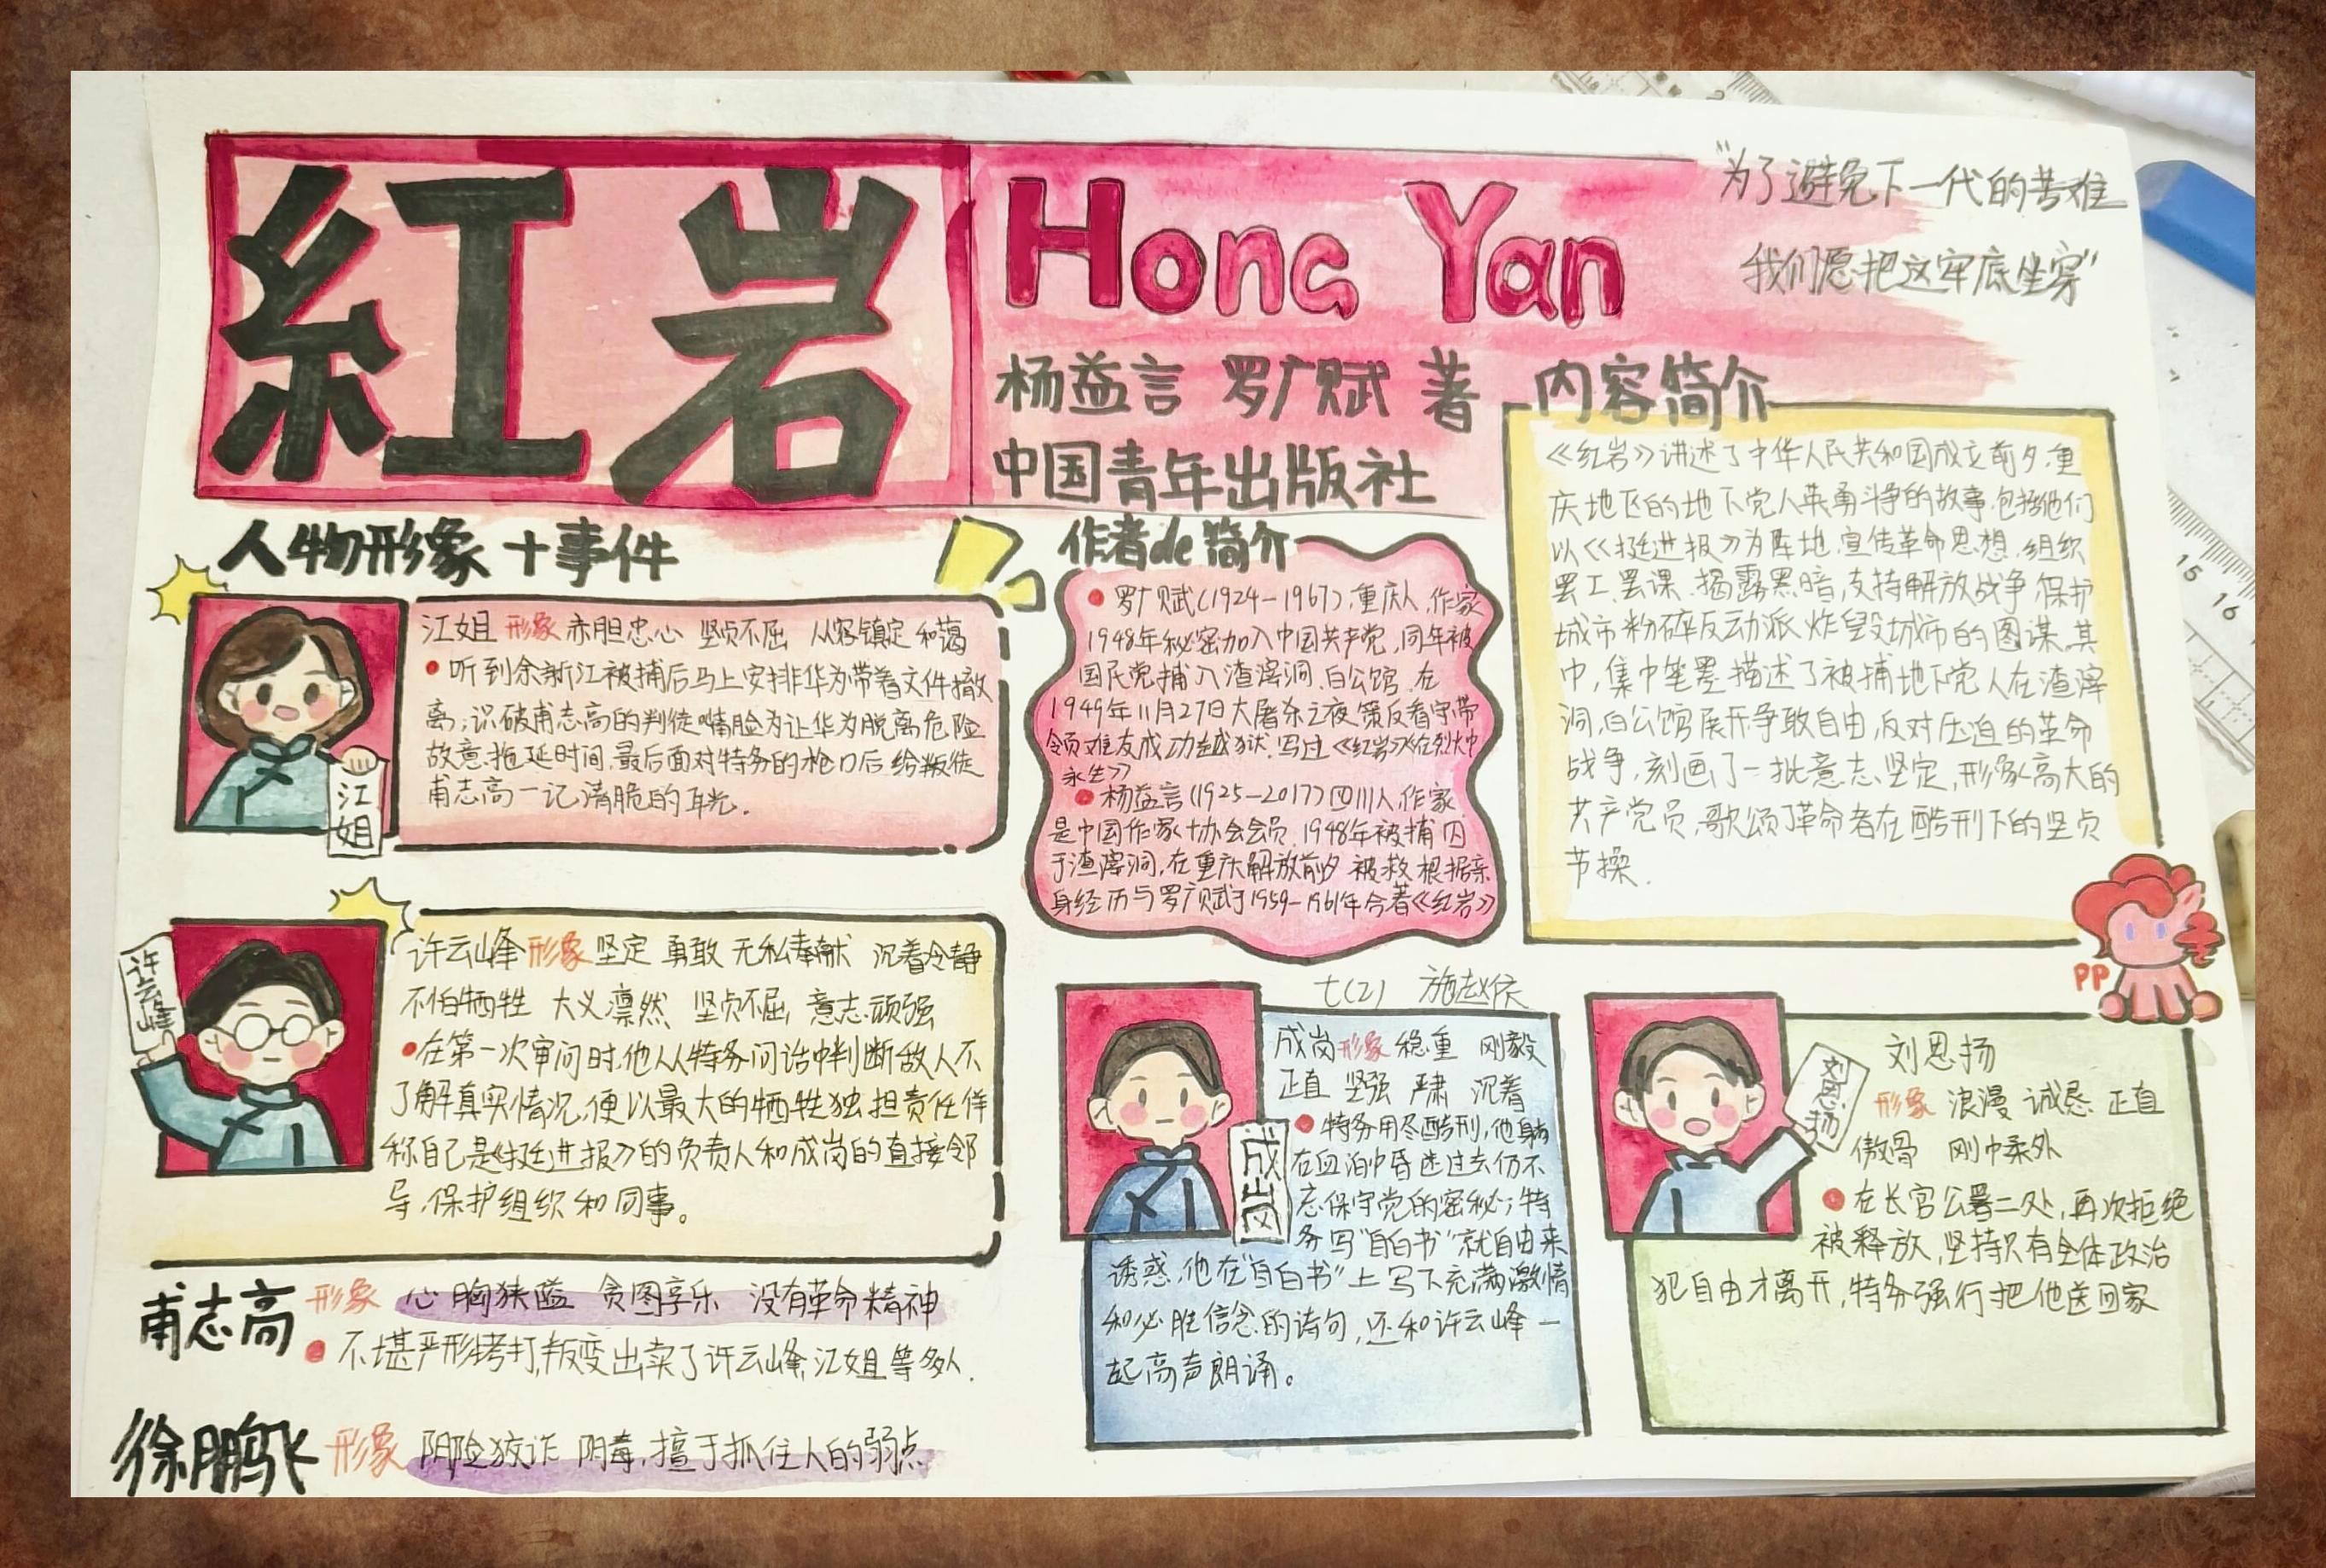 紅岩
Hong Yan
"为了避免下一代的苦难
我们愿把这牢底坐穿"
杨益言 罗广赋 著
中国青年出版社
人物形象+事件
江姐 形象 赤胆忠心 坚贞不屈 从容镇定 和蔼
·听到余新江被捕后马上安排华为带着文件撤
离;识破甫志高的判徒嘴脸为让华为脱离危险
故意拖延时间,最后面对特务的枪口后给叛徒
甫志高一记清脆的耳光.
江
姐
许云峰 形象 坚定 勇敢 无私奉献 沉着冷静
不怕牺牲 大义凛然 坚贞不屈 意志顽强
·在第一次审问时,他从特务问话中判断敌人不
了解真实情况,便以最大的牺牲独担责任佯
称自己是《挺进报》的负责人和成岗的直接邻
导,保护组织和同事。
许
云
峰
甫志高 形象 心胸狭隘 贪图享乐 没有革命精神
·不堪严形拷打,叛变出卖了许云峰,江姐等多人.
徐鹏飞 形象 阴险狡诈 阴毒,擅于抓住人的弱点
作者de简介
·罗广赋(1924-1967),重庆人,作家
1948年秘密加入中国共产党,同年被
国民党捕入渣滓洞,白公馆,在
1949年11月27日大屠杀之夜策反看守带
领难友成功越狱.写过《红岩》《在烈火中
永生》
·杨益言(1925-2017)四川人,作家
是中国作家协会会员,1948年被捕囚
于渣滓洞,在重庆解放前夕被救,根据亲
身经历与罗广赋于1959-1961年合著《红岩》
内容简介
《红岩》讲述了中华人民共和国成立前夕,重
庆地区的地下党人英勇斗争的故事,包括他们
以《挺进报》为阵地,宣传革命思想,组织
罢工、罢课、揭露黑暗,支持解放战争,保护
城市,粉碎反动派炸毁城市的图谋.其
中,集中笔墨描述了被捕地下党人在渣滓
洞,白公馆展开争取自由,反对压迫的革命
战争,刻画了一批意志坚定,形象高大的
共产党员,歌颂了革命者在酷刑下的坚贞
节操.
PP
七(2)
成岗 形象 稳重 刚毅
正直 坚强 严肃 沉着
·特务用尽酷刑,他躺
在血泊中昏迷过去仍不
忘保守党的密秘;特
务写"自白书"就自由来
诱惑,他在"自白书"上写下充满激情
和必胜信念的诗句,还和许云峰一
起高声朗诵。
成
岗
刘思扬
形象 浪漫 诚恳 正直
傲骨 刚中柔外
·在长官公署二处,再次拒绝
被释放,坚持只有全体政治
犯自由才离开,特务强行把他送回家
刘
思
扬